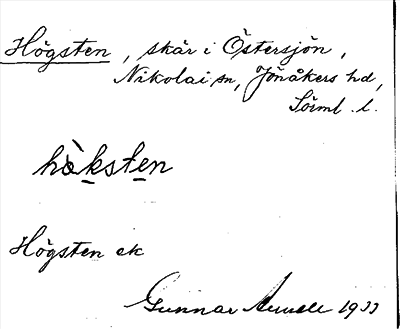 Högsten, skär i Östersjön,
Nikolai sn, Jönåkers hd,
Söiml. l.
hὼksten
Högsten ek
Gunnar 1933